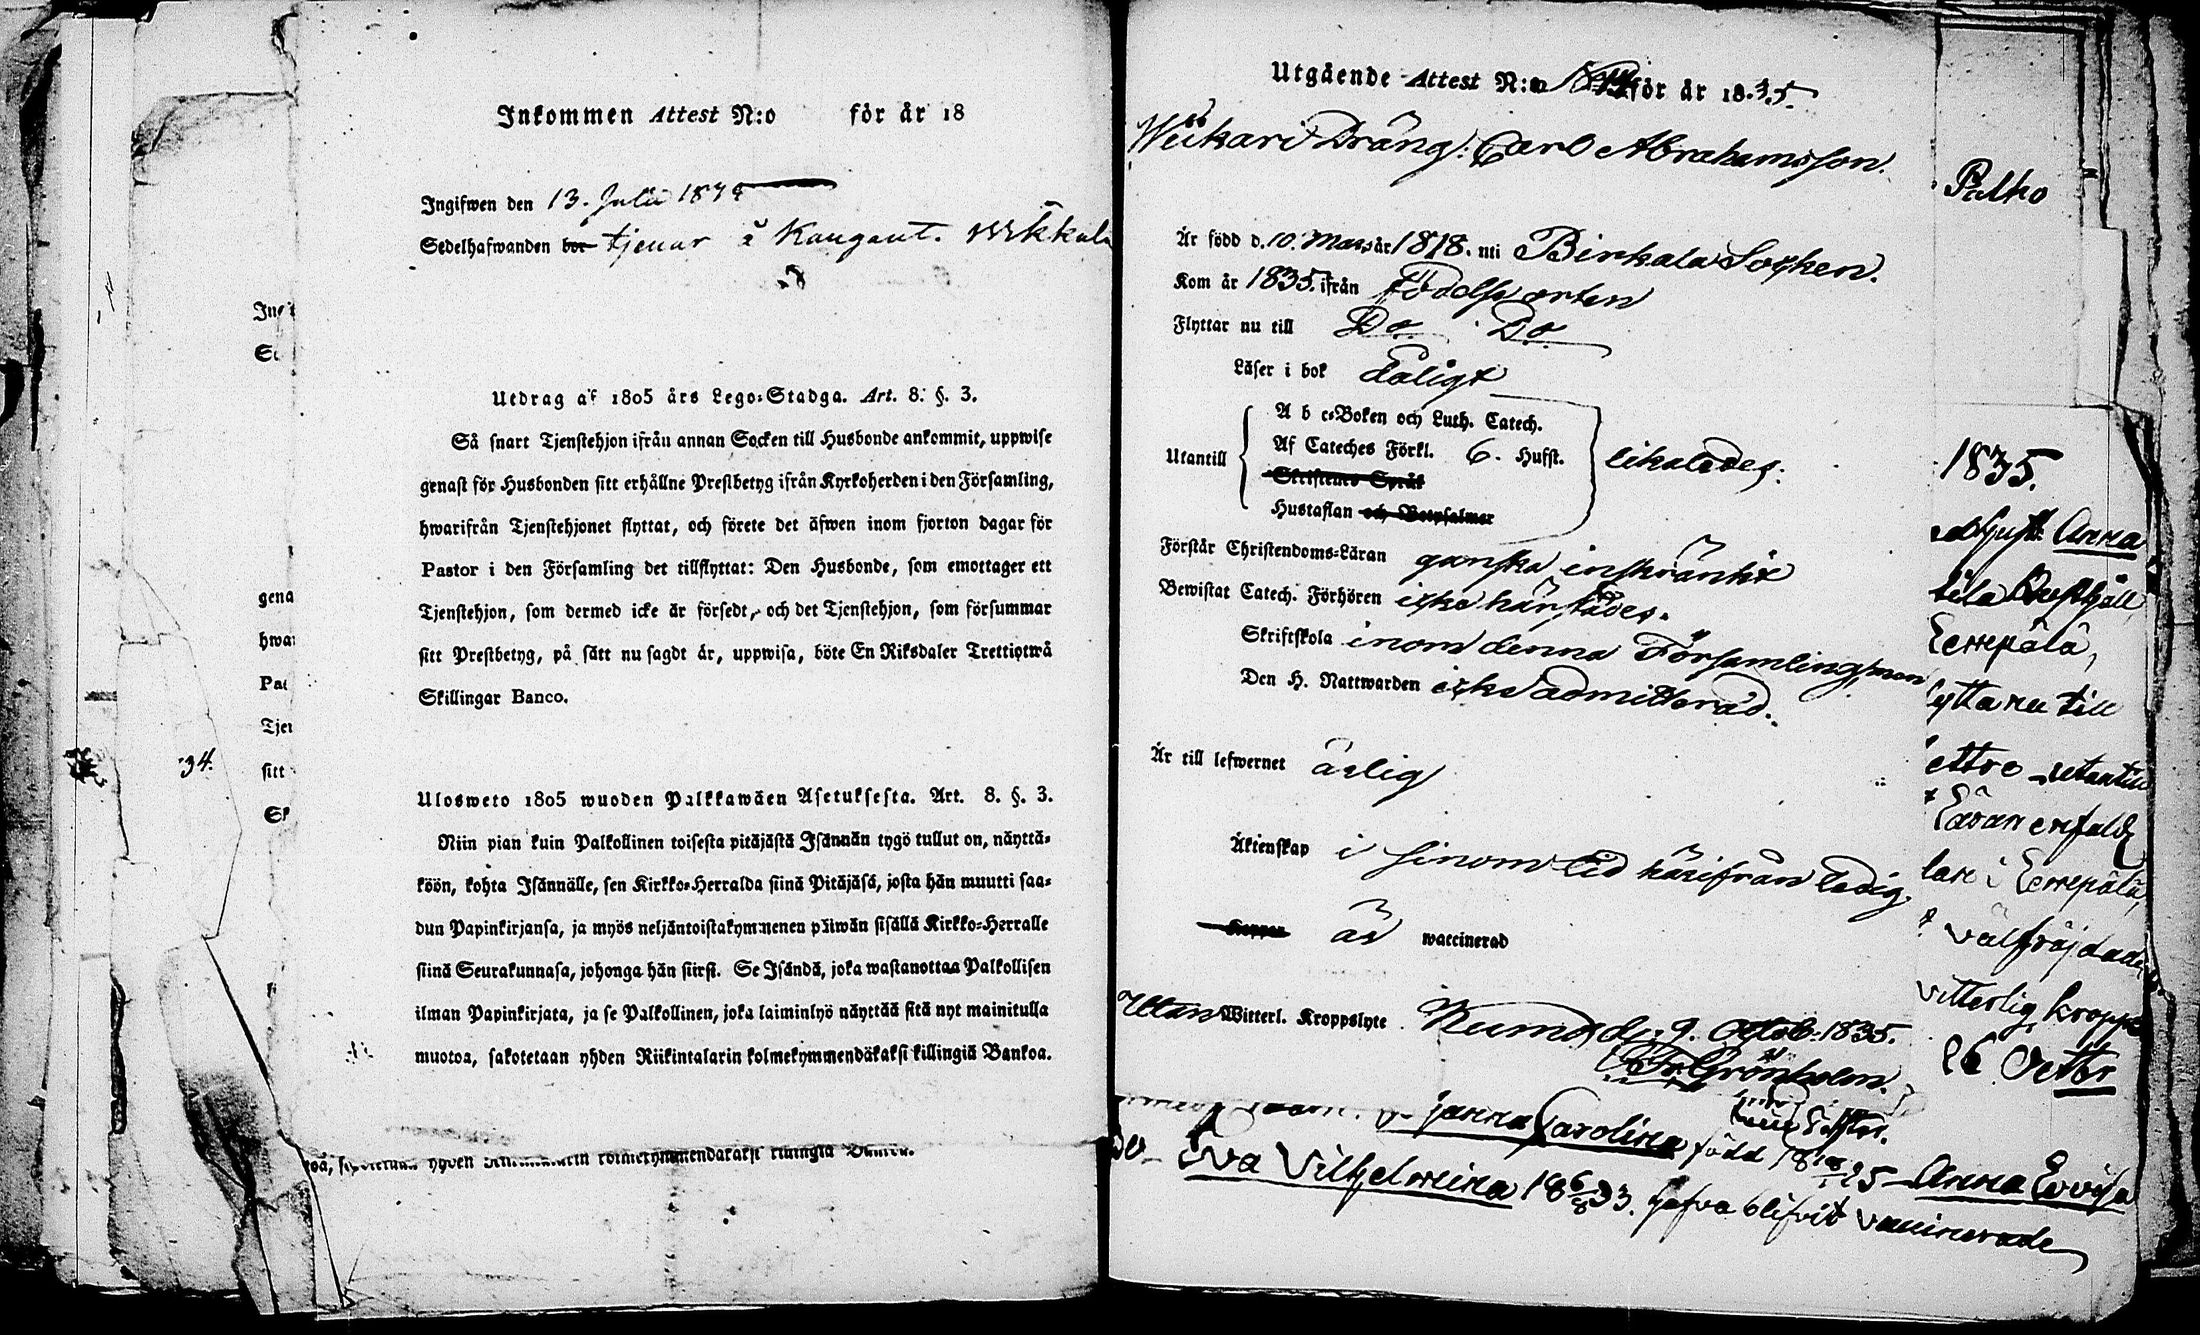 Inkommen Attest N:o för år 18
Ingifwen den 13. Julii 183
Sedelhafwanden bor tjenar å Kangant.
Utdrag af 1805 års Lego-Stadga. Art. 8. §. 3.
Så snart Tjenstehjon ifrån annan Socken till Husbonde ankommit, uppwise
genast för Husbonden sitt erhållne Prestbetyg ifrån Kyrkoherden i den Församling,
hwarifrån Tjenstehjonet flyttat, och förete det äfwen inom fjorton dagar för
Pastor i den Församling det tillflyttat: Den Husbonde, som emottager ett
Tjenstehjon, som dermed icke är försedt, och det Tjenstehjon, som försummar
sitt Prestbetyg, på sätt nu sagdt är, uppwisa, böte En Riksdaler Trettiotwå
Skillingar Banco.
Ulosweto 1805 wuoden Palkkawäen Asetuksesta. Art. 8. §. 3.
Niin pian kuin Palkollinen toisesta pitäjästä Isännän tygö tullut on, näyttä-
köön, kohta Isännälle, sen Kirkko-Herralda siinä Pitäjäsä, josta hän muutti saa-
dun Papinkirjansa, ja myös neljäntoistakymmenen päiwän sisällä Kirkko-Herralle
siinä Seurakunnasa, johonga hän siirsi. Se Isändä, joka wastanottaa Palkollisen
ilman Papinkirjata, ja se Palkollinen, joka laiminlyö näyttää sitä nyt mainitulla
muotoa, sakotetaan yhden Riikintalarin kolmekymmendäkaksi killingiä Bankoa.
34.
Utgående Attest N:o för år 1835.
Dräng: Carl Abrahamsson.
Är född d. 10. Mars år 1818. uti Birkala Socken.
Kom år 1835. ifrån Födelseorten
Flyttar nu till Do Do
Läser i bok dåligt
A b c-Boken och Luth. Catech.
Utantill Af Cateches Förkl. 6. Hufst. likaledes.
Skriftens Språk
Hustaflan och Botpsalmer
Förstår Christendoms-Läran ganska inskränkt
Bewistat Catech. Förhören icke härstädes.
Skriftskola inom denna Församling, men
Den H. Nattwarden icke admitterad.
Är till lefwernet ärlig
Äktenskap i sinom tid härifrån ledig
Koppor är waccinerad
Utan Witterl. Kroppslyte. Kumo d. 9. Octob. 1835.
Fr. Grönholm.
Carolina född
Eva Vilhelmina 18 33. hafva blifvit vaccinerade
Anna Lovisa
Palho
1835.
Anna
nu till
välfräjdade
vitterlig kropps
26 Octbr